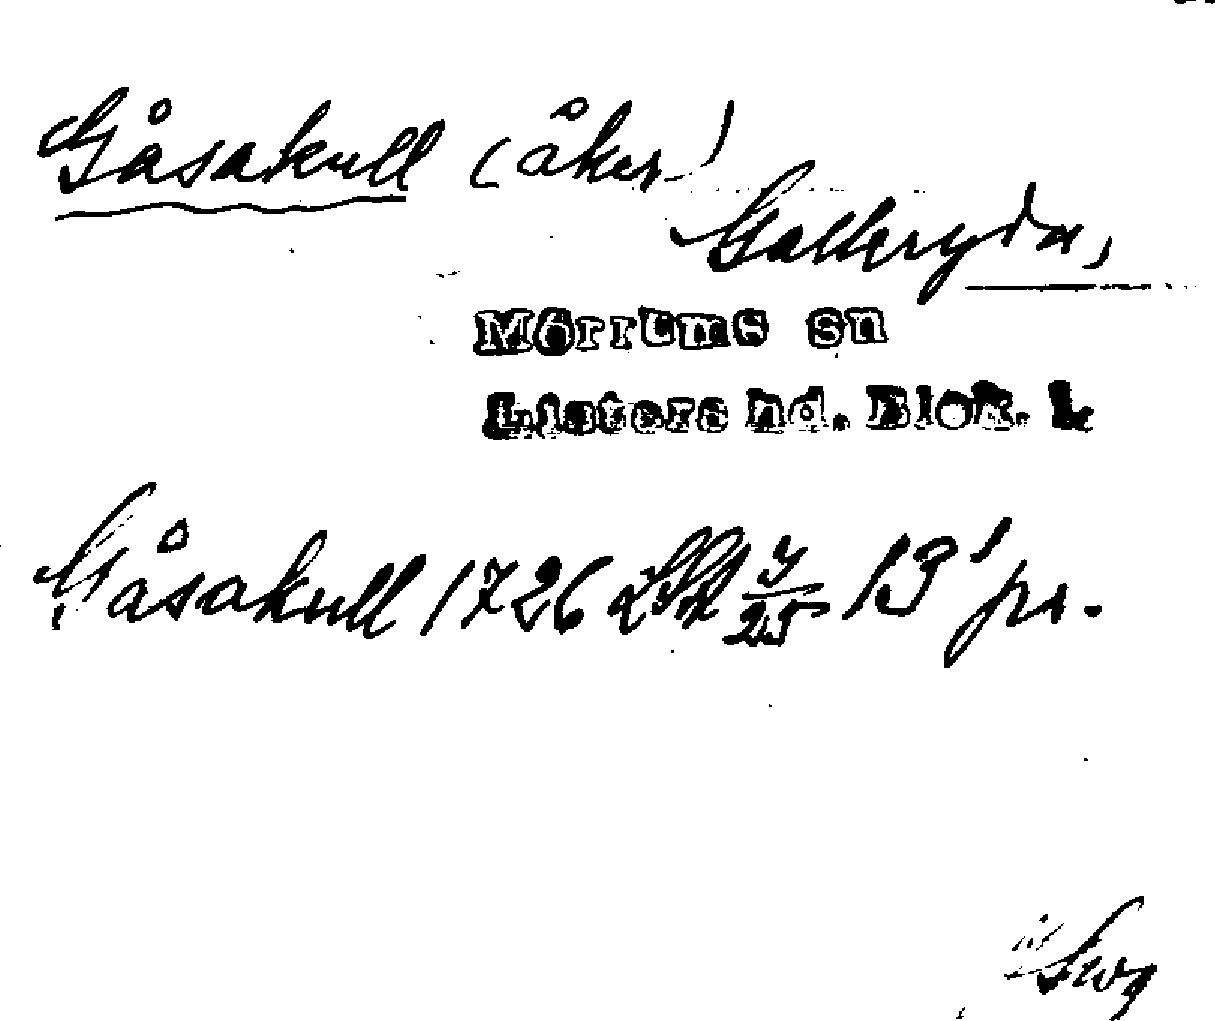 Gåsakull (åker)
Galleryda,
Mörrums sn
Listers hd. Blek. l.
Gåsakull 1726 LSA 13' pr.